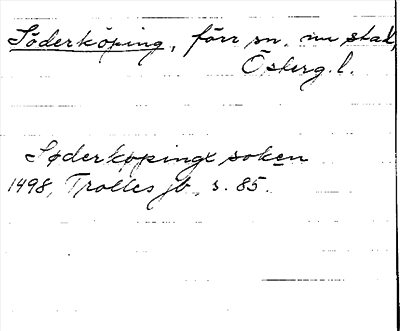 Söderköping, förr sn. nu stad,
Österg. l.
Søderkøpinge soken
1498, Trolles jb, s. 85.